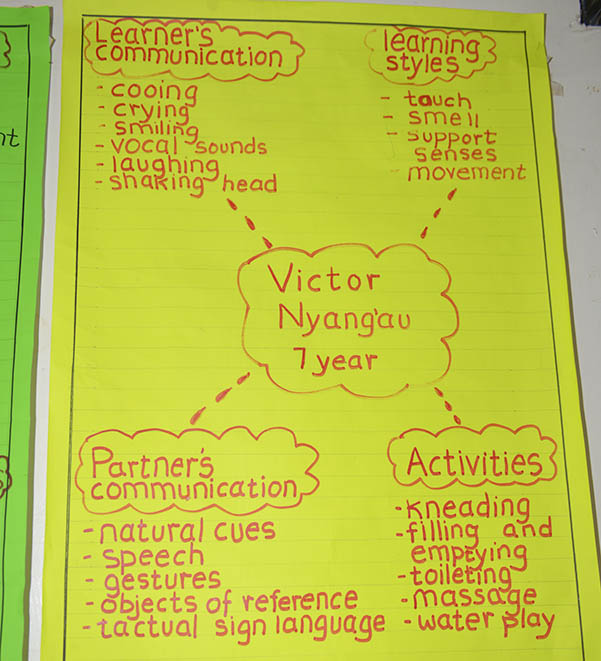 Learner's
communication
- cooing
- crying
- smiling
- vocal sounds
- laughing
- shaking head
learning
styles
- touch
- smell
- support
senses
movement
Victor
Nyang'au
7 year
Partner's
communication
- natural cues
- speech
- gestures
- objects of reference
- tactual sign language
Activities
- kneading
- filling and
emptying
- toileting
- massage
- water play